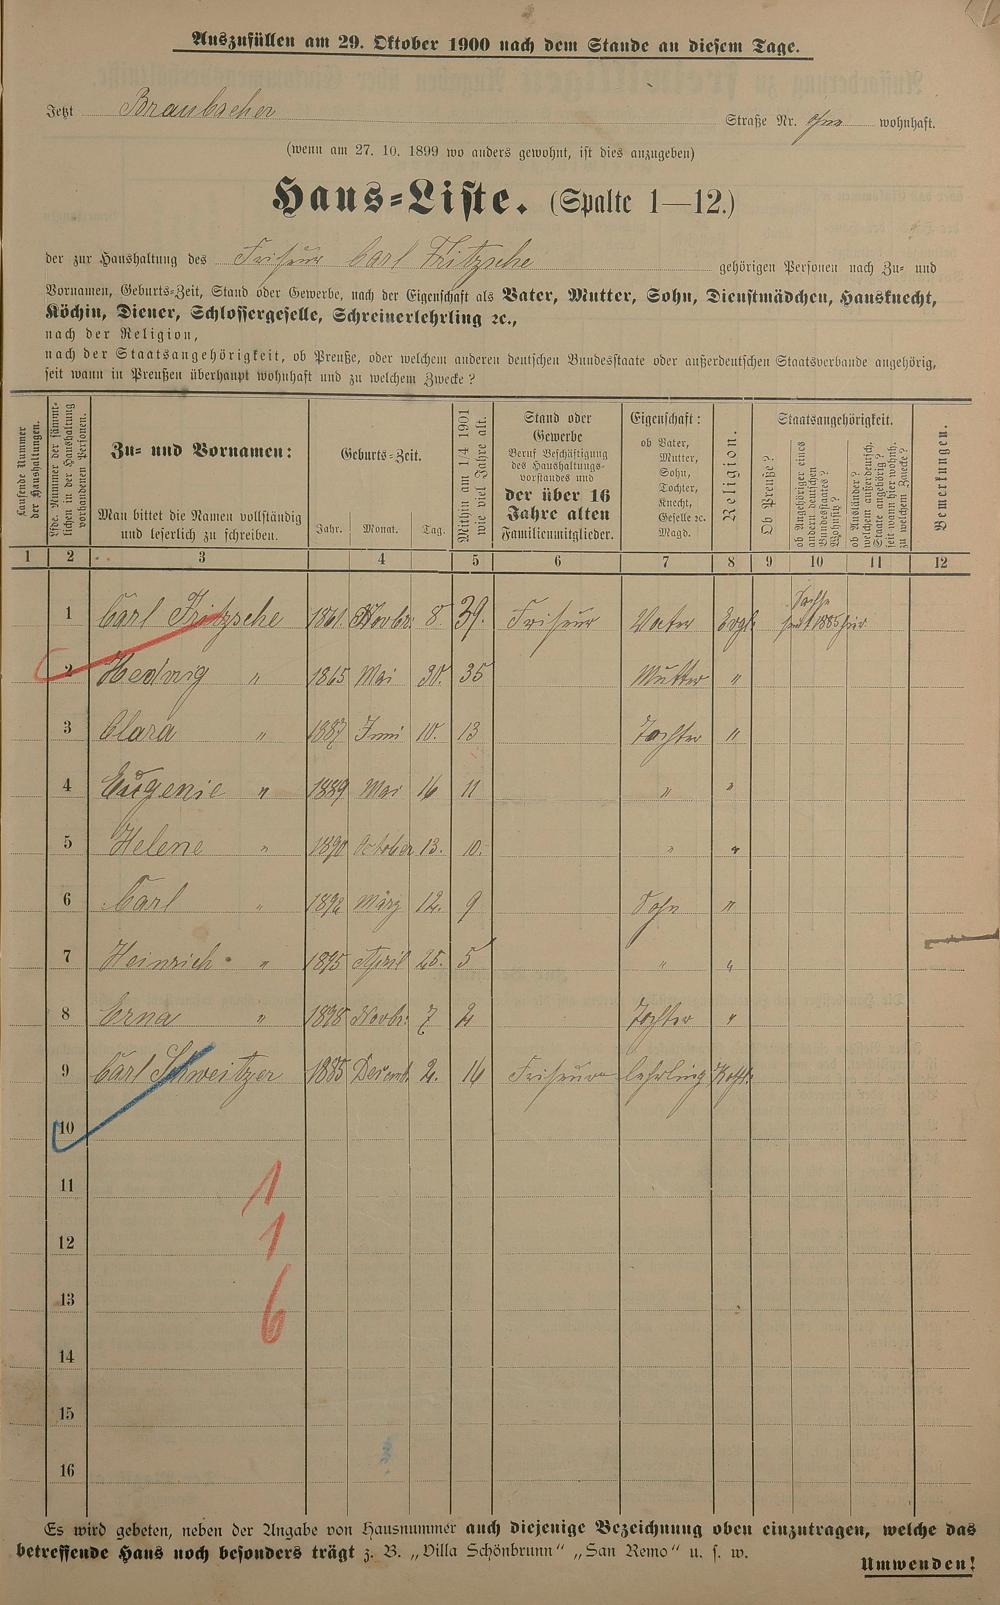 Auszufüllen am 29. Oktober 1900 nach dem Stande an diesem Tage.
Jetzt Braubacher Straße Nr. ohne wohnhaft.
(wenn am 27. 10. 1899 wo anders gewohnt, ist dies anzugeben)
Haus-Liste. (Spalte 1—12.)
der zur Haushaltung des Friseur Carl Fritzsche gehörigen Personen nach Zu- und
Vornamen, Geburts-Zeit, Stand oder Gewerbe, nach der Eigenschaft als Vater, Mutter, Sohn, Dienstmädchen, Hausknecht,
Köchin, Diener, Schlossergeselle, Schreinerlehrling ꝛc.,
nach der Religion,
nach der Staatsangehörigkeit, ob Preuße, oder welchem anderen deutschen Bundesstaate oder außerdeutschen Staatsverbande angehörig,
seit wann in Preußen überhaupt wohnhaft und zu welchem Zwecke?
Laufende Nummer
der Haushaltungen.
Lfde. Nummer der sämmt-
lichen in der Haushaltung
vorhandenen Personen.
Zu- und Vornamen:
Man bittet die Namen vollständig
und leserlich zu schreiben.
Geburts-Zeit.
Jahr. Monat. Tag.
Mithin am 1/4 1901
wie viel Jahre alt.
Stand oder
Gewerbe
Beruf Beschäftigung
des Haushaltungs-
vorstandes und
der über 16
Jahre alten
Familienmitglieder.
Eigenschaft:
ob Vater,
Mutter,
Sohn,
Tochter,
Knecht,
Geselle ꝛc.
Magd.
Religion.
Staatsangehörigkeit.
Ob Preuße?
ob Angehöriger eines
andern deutschen
Bundesstaates?
Wohnsitz?
ob Ausländer?
welchem außerdeutsch.
Staate angehörig?
seit wann hier wohnh.
zu welchem Zwecke?
Bemerkungen.
1 2 3 4 5 6 7 8 9 10 11 12
1 Carl Fritzsche 1861. Novbr. 8. 39. Friseur Vater Evgl. Sachse
seit 1885 hier
2 Hedwig " 1865 Mai 30. 35 Mutter "
3 Clara " 1887 Juni 10. 13 Tochter "
4 Eugenie " 1889 Mai 16 11 " "
5 Helene " 1890 October 13. 10. " "
6 Carl " 1892 März 12. 9 Sohn "
7 Heinrich " 1895 April 25. 5 " "
8 Erna " 1898 Novbr. 7 2 Tochter "
9 Carl Schweitzer 1885 Decemb. 2. 16 Friseur lehrling Kath.
10
11 1
12 1
13 6
14
15
16
Es wird gebeten, neben der Angabe von Hausnummer auch diejenige Bezeichnung oben einzutragen, welche das
betreffende Haus noch besonders trägt z. B. „Villa Schönbrunn" „San Remo" u. s. w.
Umwenden!